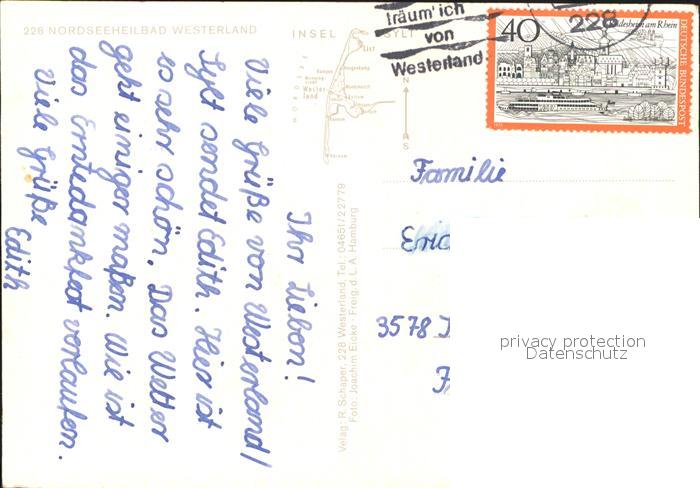 228 NORDSEEHEILBAD WESTERLAND
INSEL SYLT
List
Kampen
Wester-
land
Keitum
Hörnum
N
träum' ich
von
Westerland
228
40
Rüdesheim am Rhein
DEUTSCHE BUNDESPOST
Ihr Lieben!
Viele Grüße von Westerland/
Sylt sendet Edith. Hier ist
es sehr schön. Das Wetter
geht einigermaßen. Wie ist
das Erntedankfest verlaufen.
Viele Grüße
Edith
Verlag: R. Schaper, 228 Westerland, Tel.: 04651/22779
Foto: Joachim Eicke · Freig. d. L. A. Hamburg
Familie
Eric
3578
privacy protection
Datenschutz